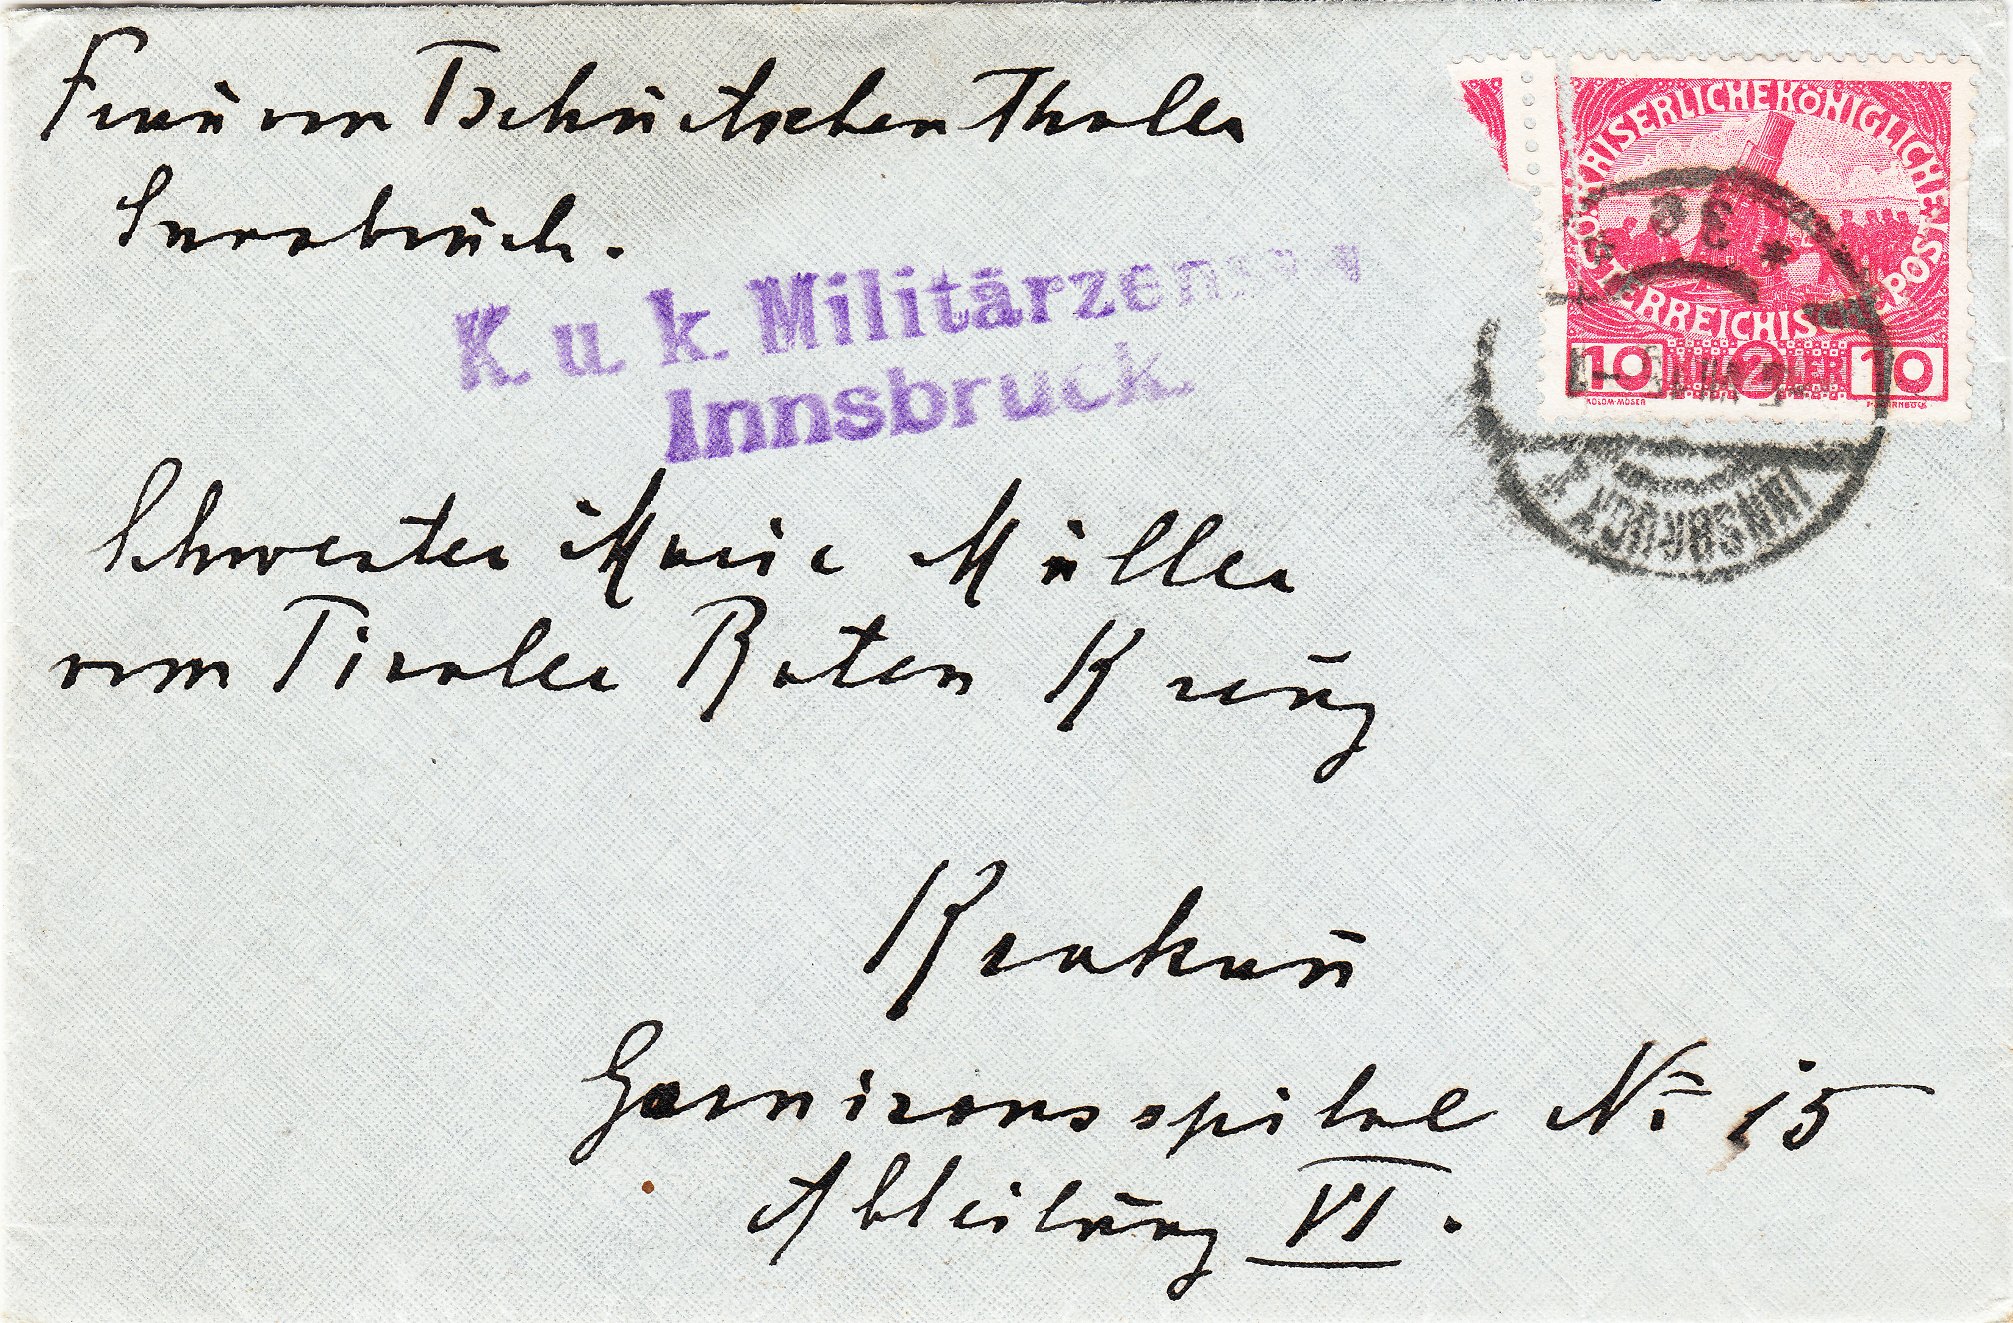 Frau von Tschurtschenthaler
Innsbruck.
K. u. k. Militärzensur
Innsbruck.
KAISERLICHEKÖNIGLICHE
ÖSTERREICHISCHE POST
10 2 HELLER 10
KOLOM·MOSER
INNSBRUCK 2
* 3e *
Schwester Marie Müller
vom Tiroler Roten Kreuz
Krakau
Garnisonsspital Nr 15
Abteilung VI.